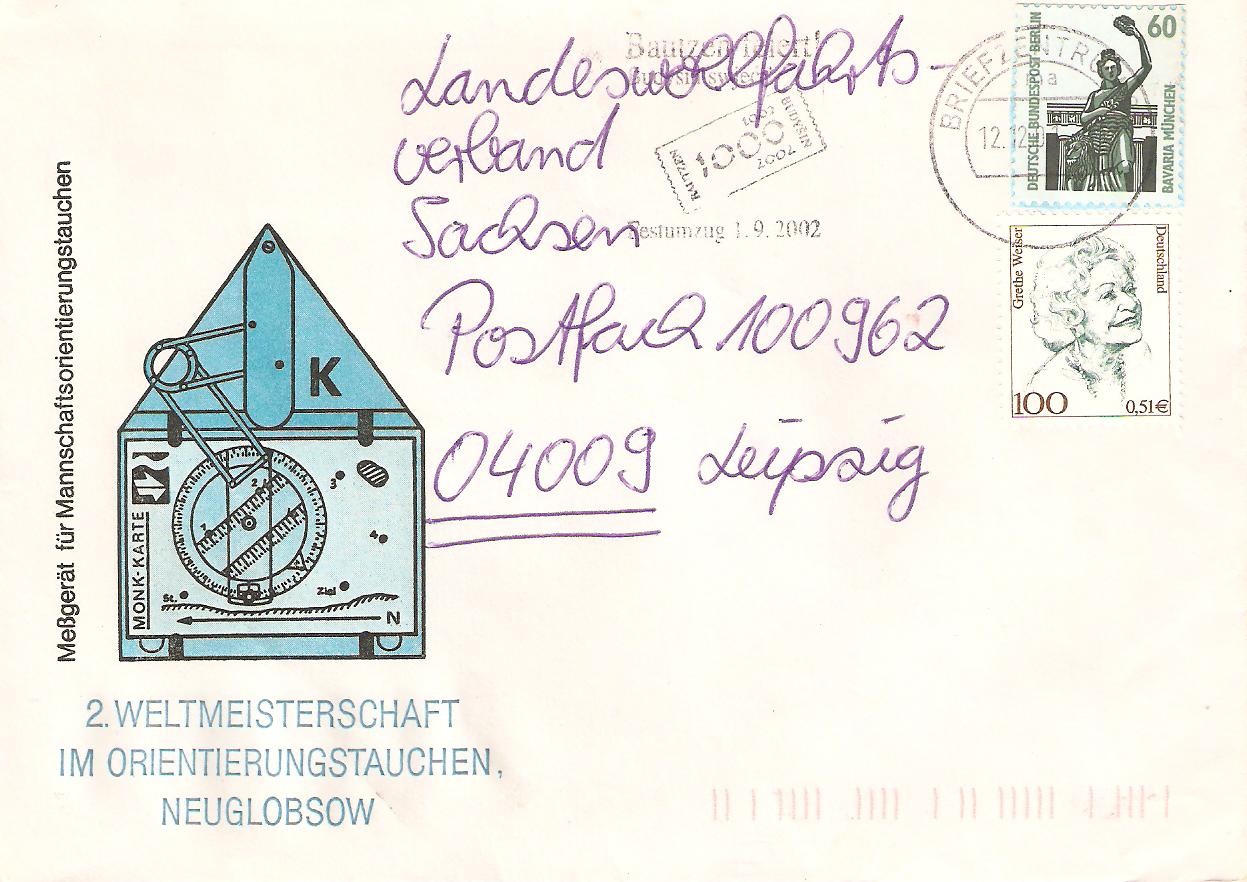 Landeswohlfahrts-
verband
Sachsen
Postfach 100962
04009 Leipzig
Bautzen feiert!
BAUTZEN
1000
1002
2002
BUDYŠIN
Festumzug 1.9.2002
BRIEFZENTR
12.12.0
DEUTSCHE BUNDESPOST BERLIN
60
BAVARIA MÜNCHEN
Grethe Weiser
Deutschland
100
0,51€
Meßgerät für Mannschaftsorientierungstauchen
K
MONK-KARTE
1
2
3
4
St.
Ziel
N
2. WELTMEISTERSCHAFT
IM ORIENTIERUNGSTAUCHEN,
NEUGLOBSOW